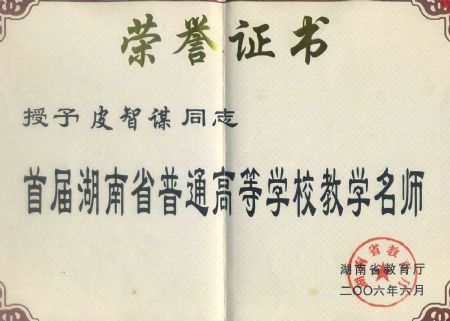 荣誉证书
授予皮智谋同志
首届湖南省普通高等学校教学名师
湖南省教育厅
湖南省教育厅
二〇〇六年六月